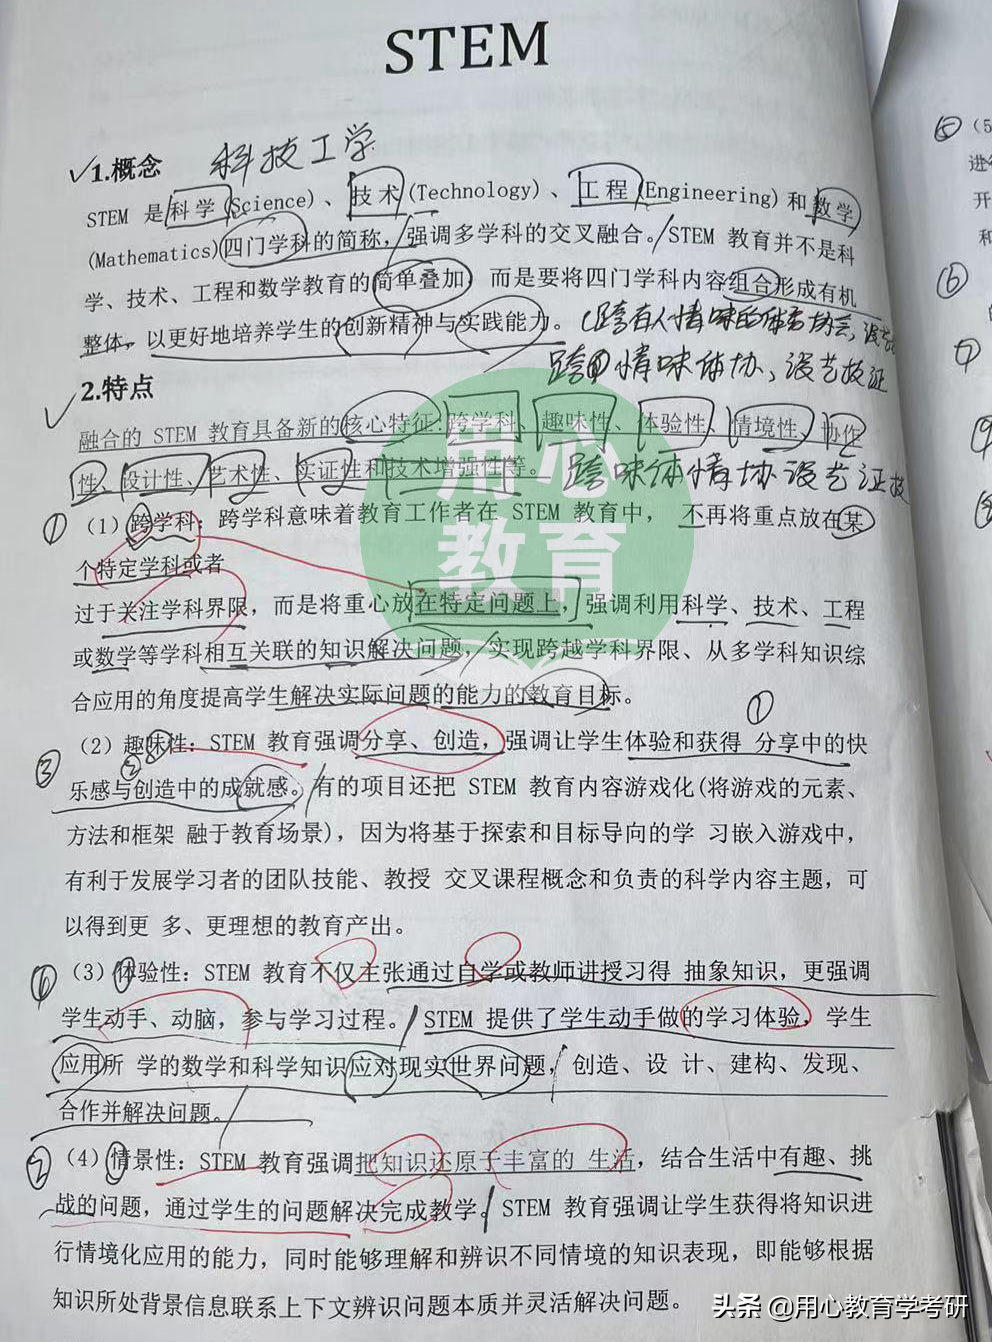 STEM
√1.概念 科技工学
STEM 是科学(Science)、技术(Technology)、工程(Engineering)和数学
(Mathematics)四门学科的简称,强调多学科的交叉融合。STEM 教育并不是科
学、技术、工程和数学教育的简单叠加,而是要将四门学科内容组合形成有机
整体,以更好地培养学生的创新精神与实践能力。(跨有人情味的体育协会,没艺
跨 情味体协、设艺技证
√2.特点
融合的 STEM 教育具备新的核心特征:跨学科、趣味性、体验性、情境性、协作
性、设计性、艺术性、实证性和技术增强性等。 跨味体情协设艺证技
① (1)跨学科:跨学科意味着教育工作者在 STEM 教育中, 不再将重点放在某
个特定学科或者
过于关注学科界限,而是将重心放在特定问题上,强调利用科学、技术、工程
或数学等学科相互关联的知识解决问题,实现跨越学科界限、从多学科知识综
合应用的角度提高学生解决实际问题的能力的教育目标。
①
(2)趣味性:STEM 教育强调分享、创造,强调让学生体验和获得 分享中的快
③ ②
乐感与创造中的成就感。有的项目还把 STEM 教育内容游戏化(将游戏的元素、
方法和框架 融于教育场景),因为将基于探索和目标导向的学 习嵌入游戏中,
有利于发展学习者的团队技能、教授 交叉课程概念和负责的科学内容主题,可
以得到更 多、更理想的教育产出。
(3)体验性:STEM 教育不仅主张通过自学或教师讲授习得 抽象知识,更强调
学生动手、动脑,参与学习过程。STEM 提供了学生动手做的学习体验,学生
应用所 学的数学和科学知识应对现实世界问题,创造、设 计、建构、发现、
合作并解决问题。
(4)情景性:STEM 教育强调把知识还原于丰富的 生活,结合生活中有趣、挑
战的问题,通过学生的问题解决完成教学。STEM 教育强调让学生获得将知识进
行情境化应用的能力,同时能够理解和辨识不同情境的知识表现,即能够根据
知识所处背景信息联系上下文辨识问题本质并灵活解决问题。
用心
教育
⑤ (5
进行
开
和
⑥
⑦
头条 @用心教育学考研